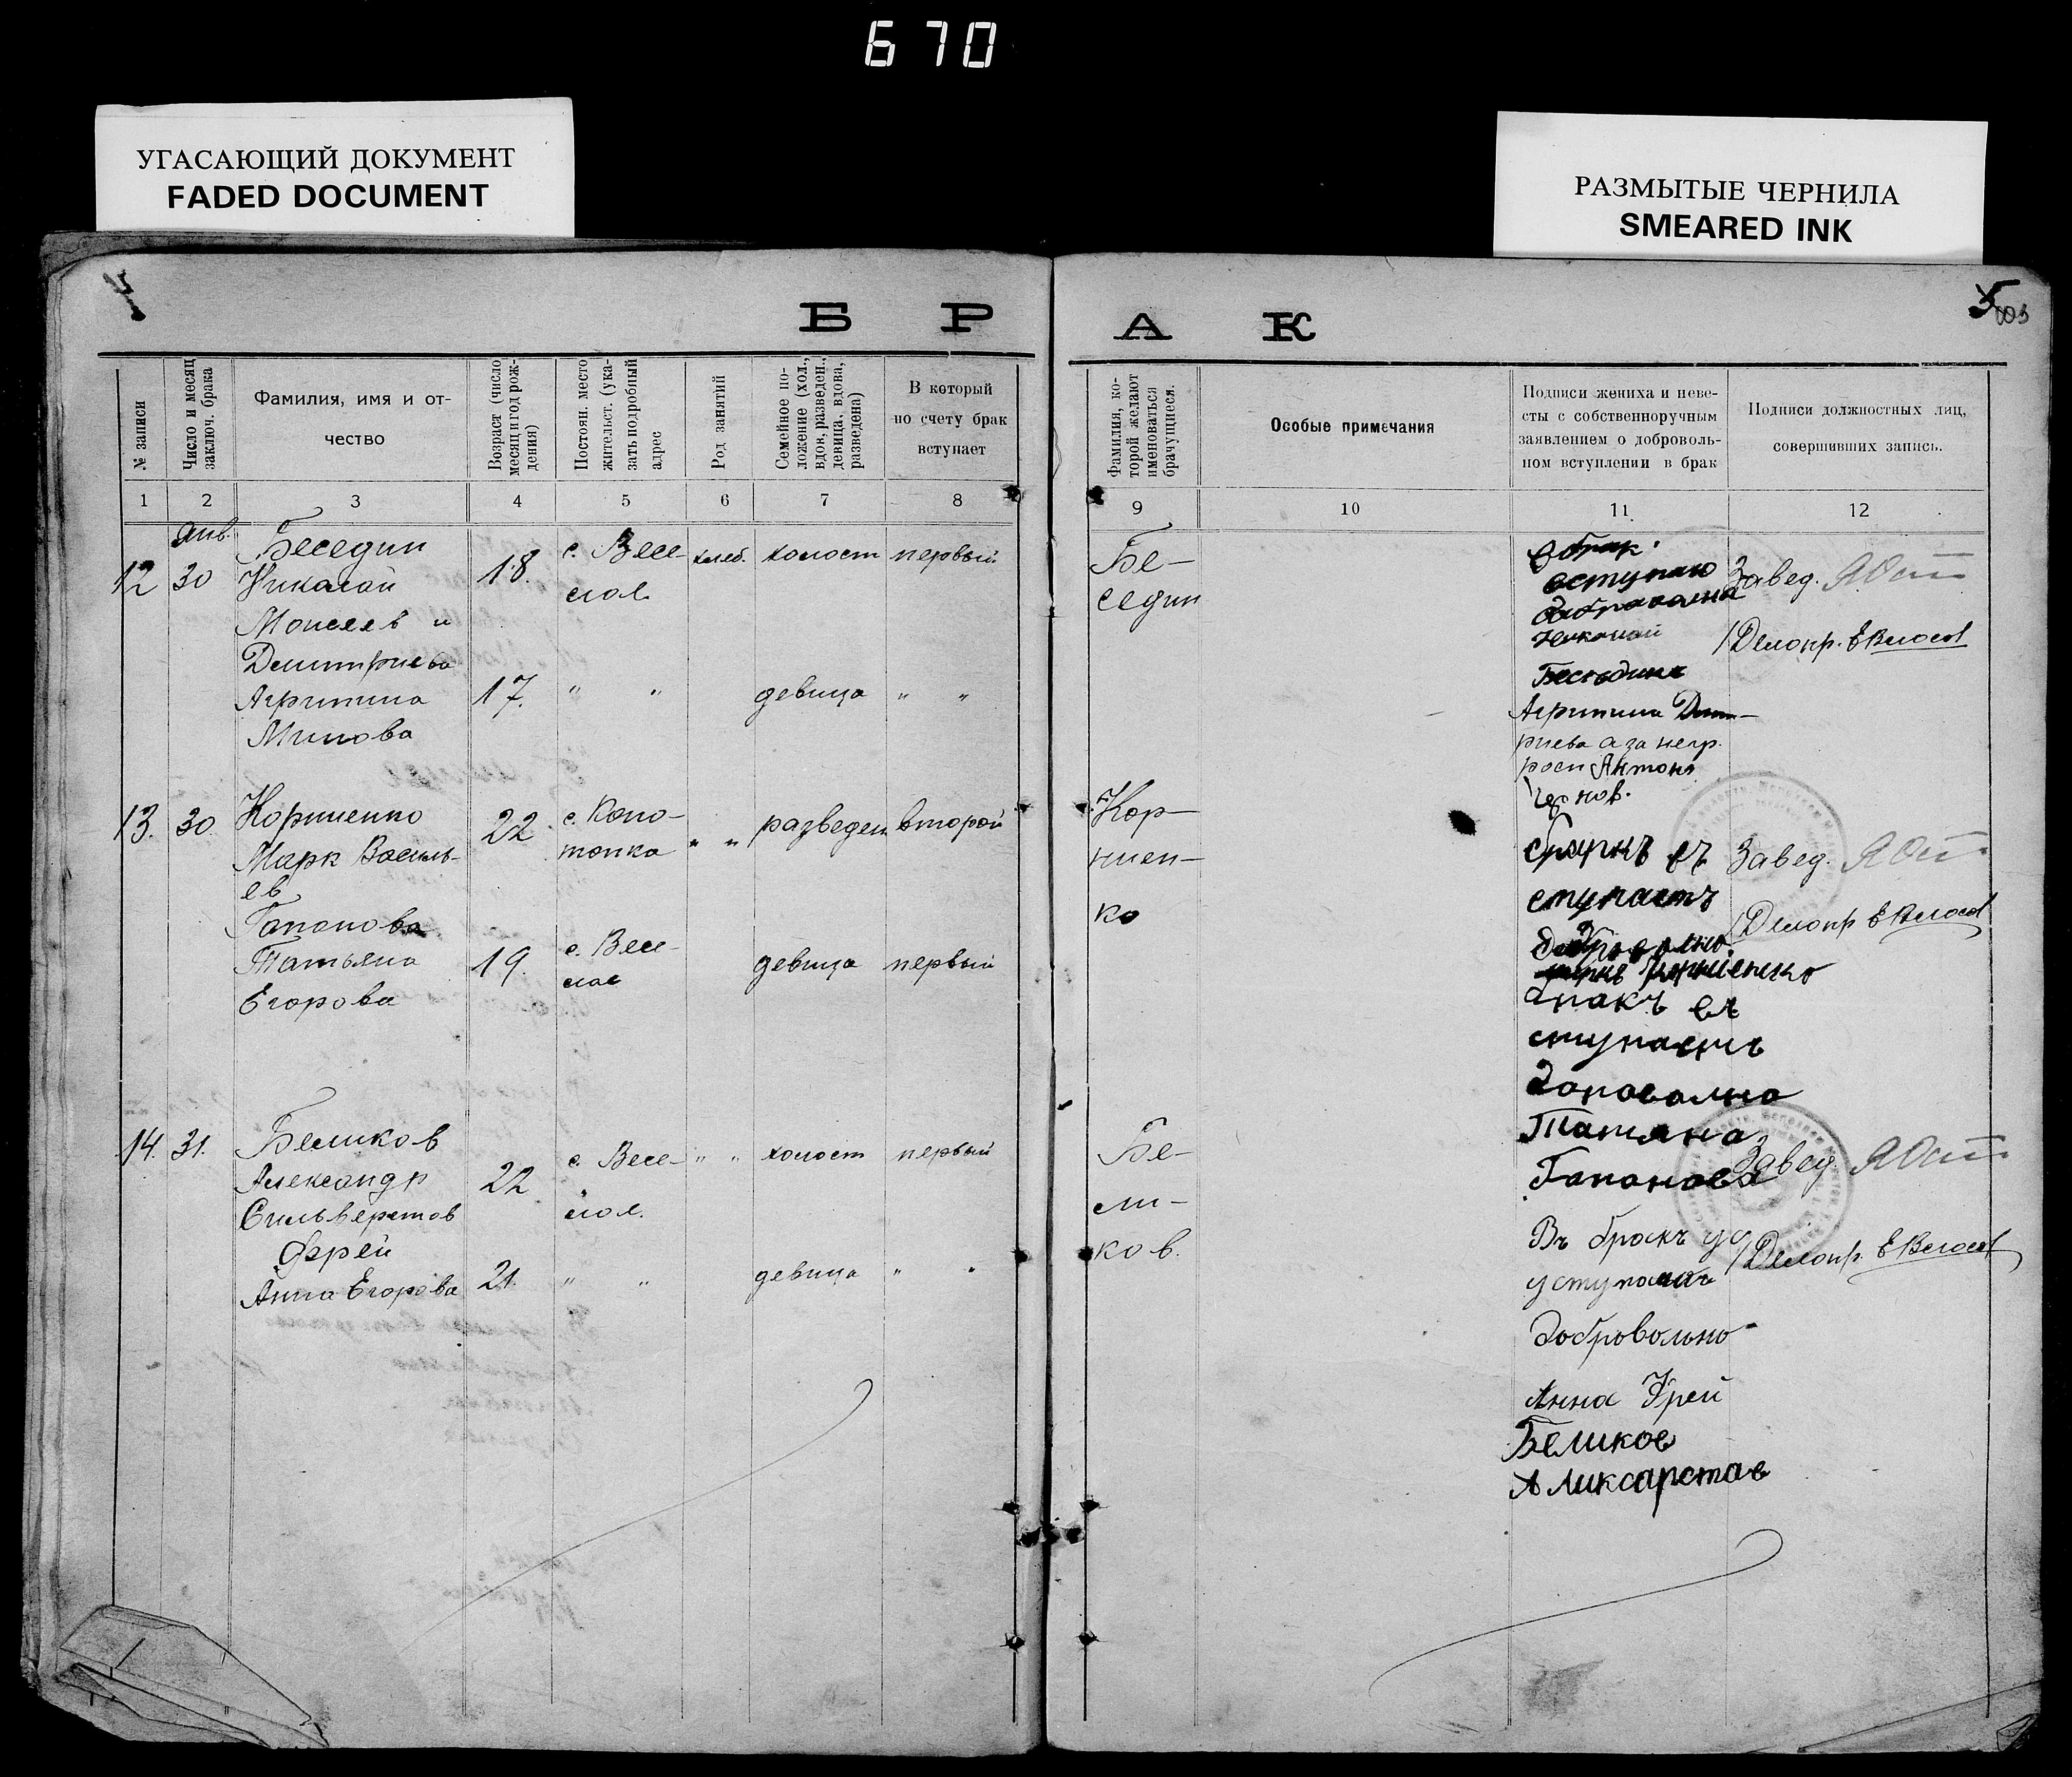 670
УГАСАЮЩИЙ ДОКУМЕНТ
FADED DOCUMENT
РАЗМЫТЫЕ ЧЕРНИЛА
SMEARED INK
БРАК
№ записи
Число и месяц
заключ. брака
Фамилия, имя и от-
чество
Возраст (число
месяц и год рож-
дения)
Постоян. место
жительст. (ука-
зать подробный
адрес
Род занятий
Семейное по-
ложение (хол.,
вдов, разведен.,
девица, вдова,
разведена)
В который
по счету брак
вступает
Фамилия, ко-
торой желают
именоваться
брачущиеся.
Особые примечания
Подписи жениха и неве-
сты с собственноручным
заявлением о доброволь-
ном вступлении в брак
Подписи должностных лиц,
совершивших запись.
1 2 3 4 5 6 7 8 9 10 11 12
12
янв.
30
Беседин
Николай
Моисеев и
Дмитриева
Агрипина
Минова
18.
17.
с. Весе-
лое
" "
хлеб.
холост
девица
первый
" "
Бе-
седин
вступаю
Николай
Агрипина Дмит-
риева а за негр.
росп Антон
Завед.
Делопр.
13.
30.
Корниенко
Марк Василь-
ев
Гапонова
Татьяна
Егорова
22
19.
с. Коно-
топка
с. Весе-
лое
" "
разведен
девица
второй
первый
Кор-
ниен-
ко
ступаетъ
Корниенко
ступаетъ
Татяна
Гапонова
Завед.
Делопр
14.
31.
Беликов
Александр
Сильверстов
Фрей
Анна Егорова
22
21.
с. Весе-
лое.
" "
" "
холост
девица
первый
" "
Бе-
ли-
ков.
Въ бракъ
добровольно
Анна Фрей
Беликов
Завед.
Делопр.